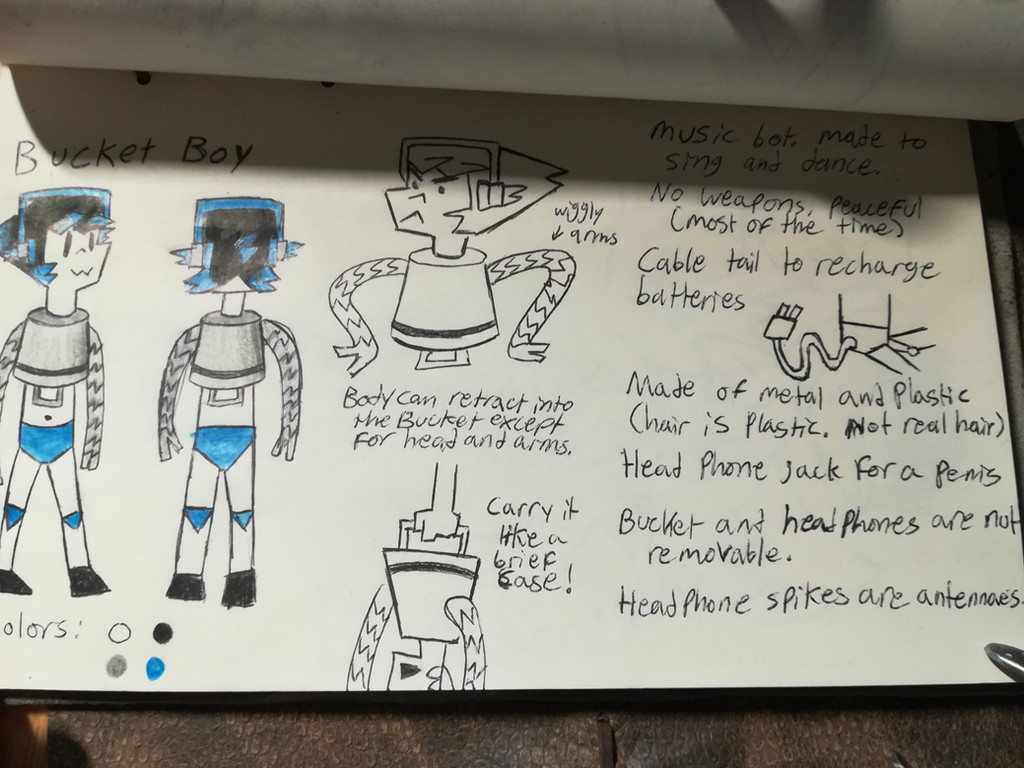 Bucket Boy
wiggly
arms
Body can retract into
the Bucket except
for head and arms.
Carry it
like a
brief
case!
olors:
music bot. made to
sing and dance.
No weapons, peaceful
(most of the time)
Cable tail to recharge
batteries
Made of metal and Plastic
(hair is plastic. Not real hair)
Head Phone jack for a penis
Bucket and headphones are not
removable.
Headphone spikes are antennaes.